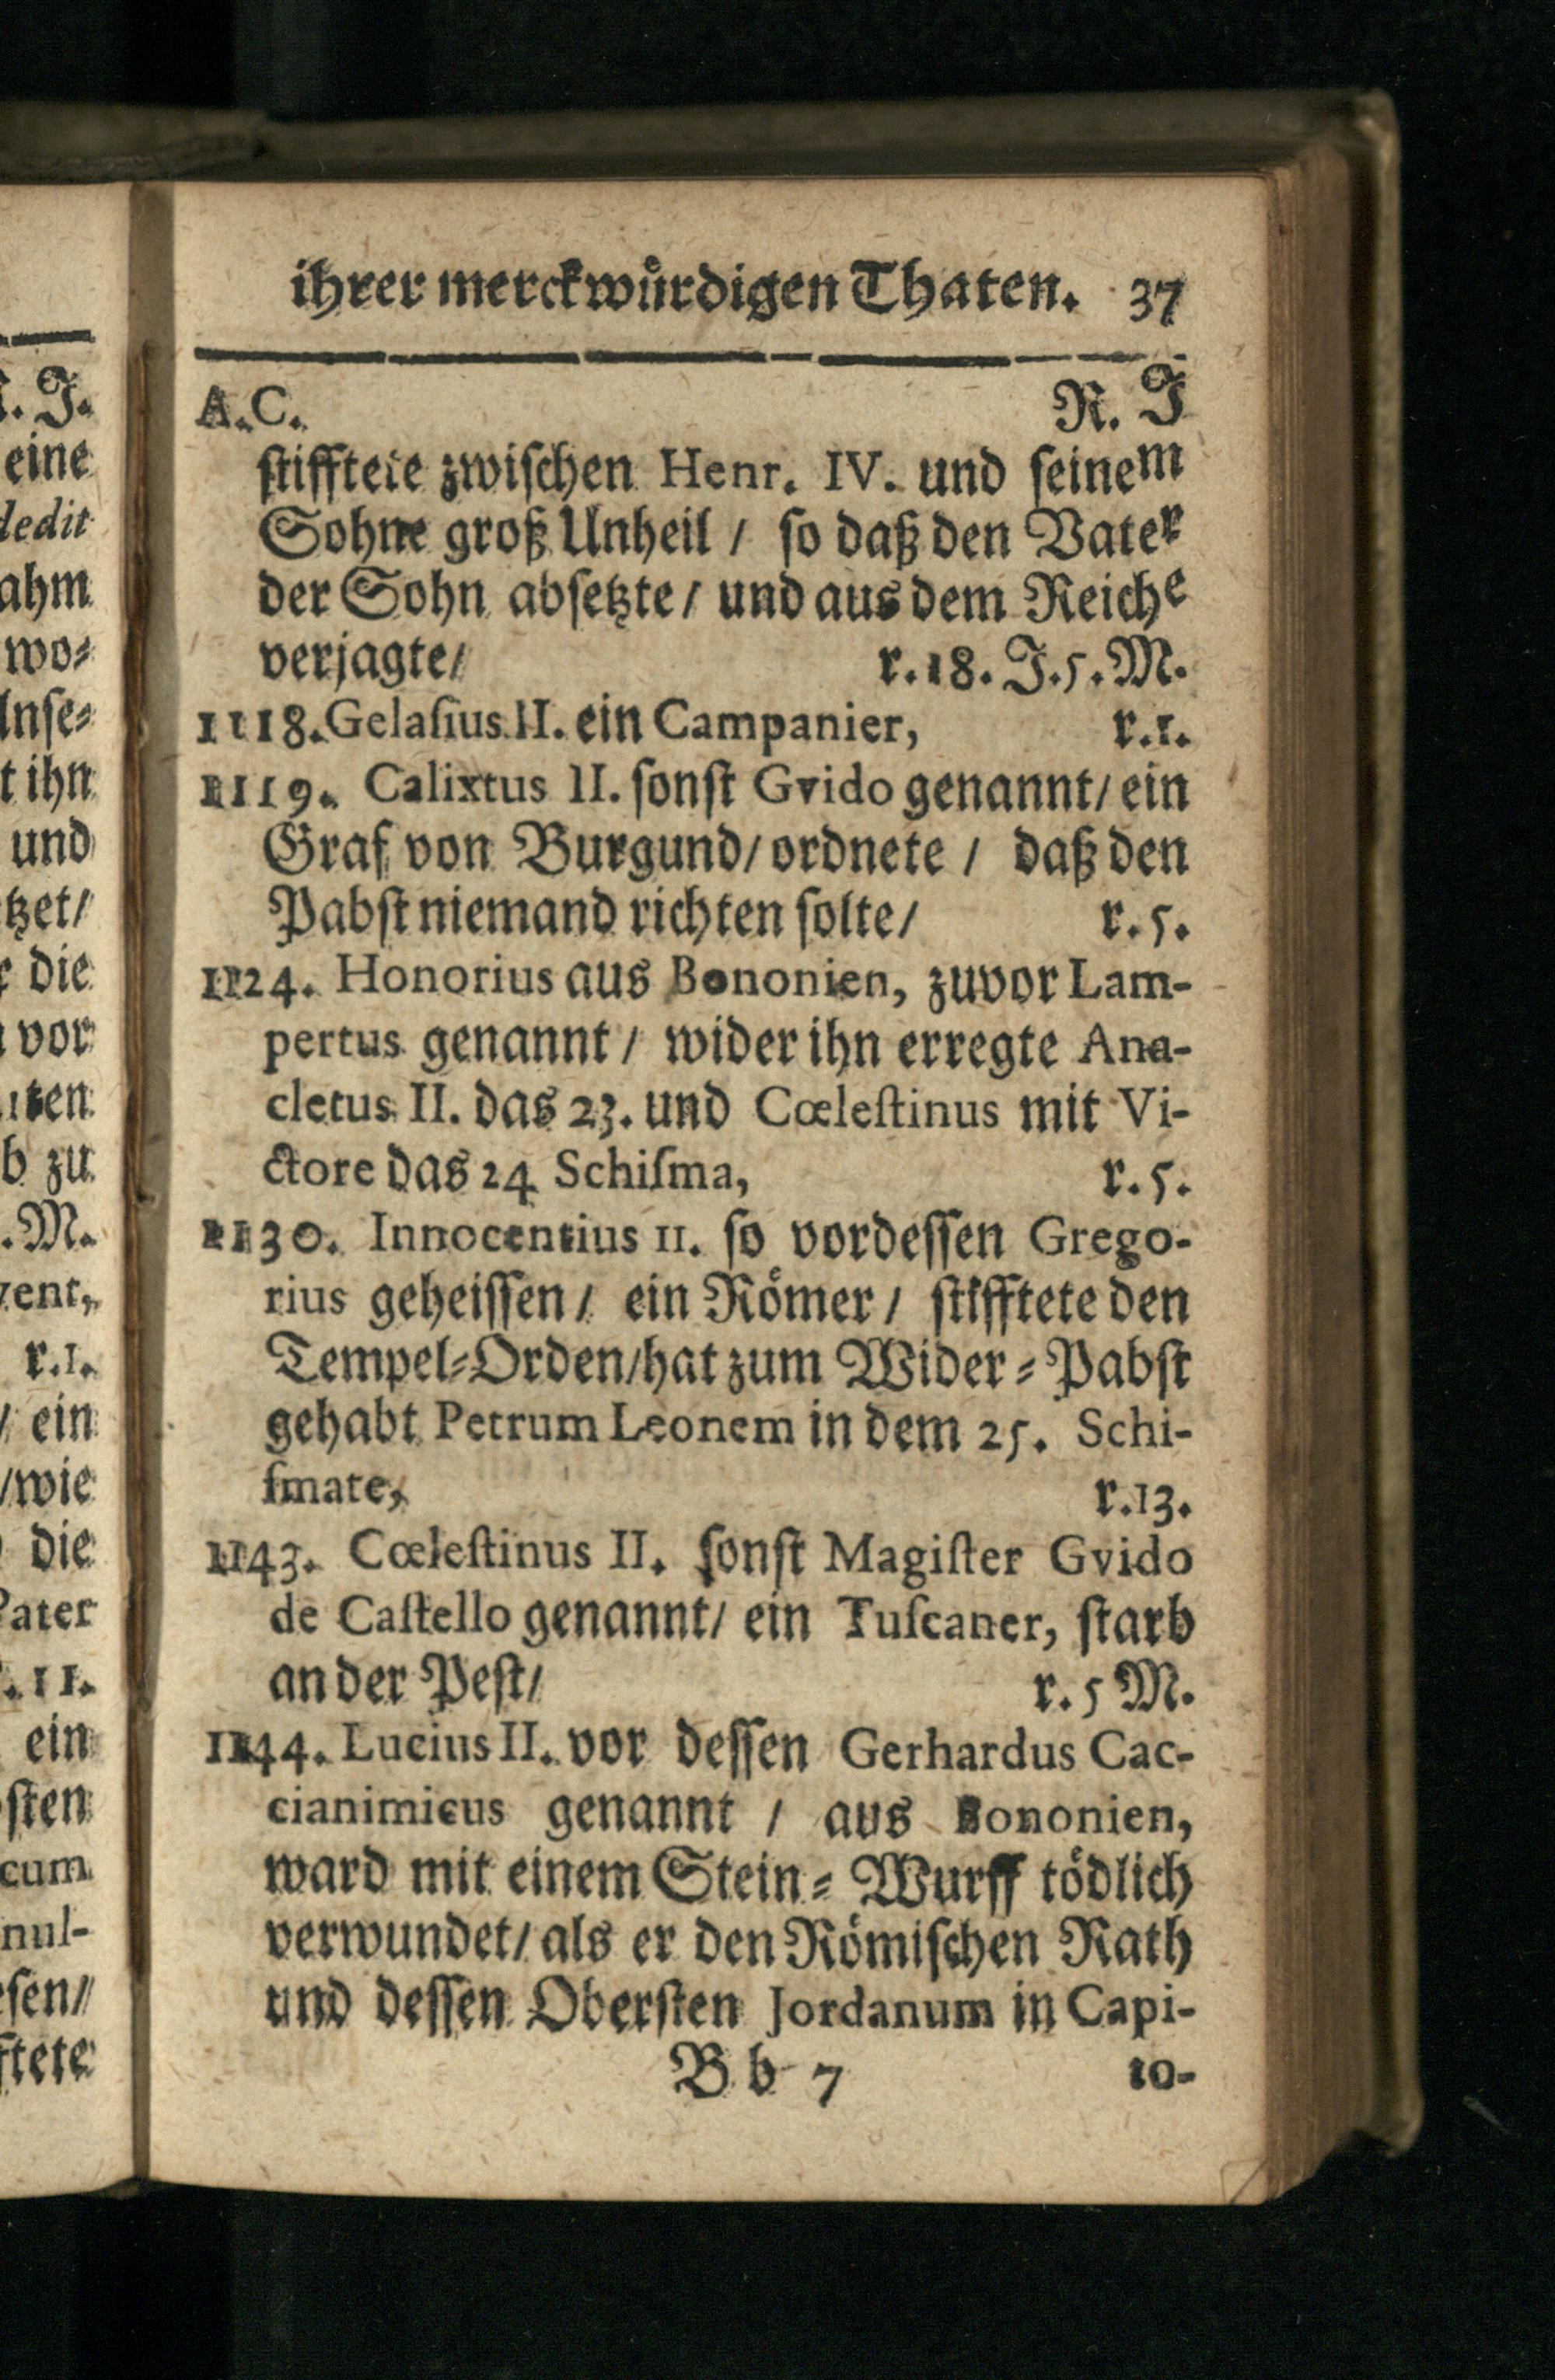 ihrer merckwürdigen Thaten. 37
A.C. R. J
stifftete zwischen Henr. IV. und seinem
Sohne groß Unheil / so daß den Vater
der Sohn absetzte / und aus dem Reiche
verjagte / r. 18. J. 5. M.
1118. Gelasius II. ein Campanier, r. 1.
1119. Calixtus II. sonst Gvido genannt / ein
Graf von Burgund / ordnete / daß den
Pabst niemand richten solte / r. 5.
1124. Honorius aus Bononien, zuvor Lam-
pertus genannt / wider ihn erregte Ana-
cletus II. das 23. und Cœlestinus mit Vi-
ctore das 24 Schisma, r. 5.
1130. Innocentius II. so vordessen Grego-
rius geheissen / ein Römer / stifftete den
Tempel-Orden / hat zum Wider-Pabst
gehabt Petrum Leonem in dem 25. Schi-
smate, r. 13.
1143. Cœlestinus II. sonst Magister Gvido
de Castello genannt / ein Tuscaner, starb
an der Pest / r. 5 M.
1144. Lucius II. vor dessen Gerhardus Cac-
cianimicus genannt / aus Bononien,
ward mit einem Stein-Wurff tödlich
verwundet / als er den Römischen Rath
und dessen Obersten Jordanum in Capi-
B b 7 to-
J.
eine
dedit
ahm
wo-
t ihn
und
tzet /
die
vor
b zu
M.
r. 1.
/ ein
/ wie
die
Pater
11.
ein
sten
cum
nul-